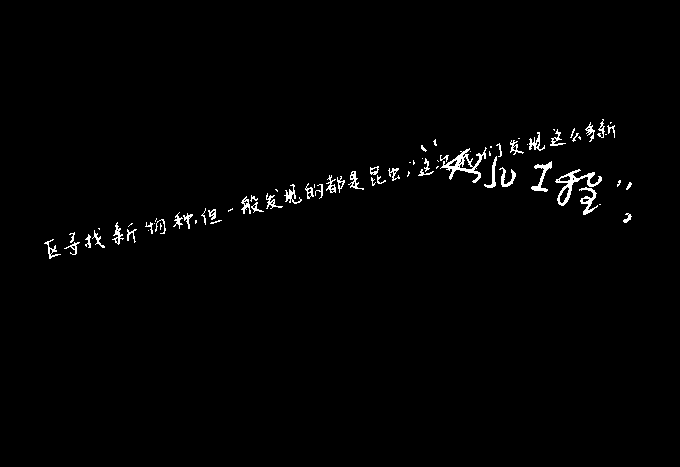 区寻找新物种,但一般发现的都是昆虫,"这次我们发现这么多新